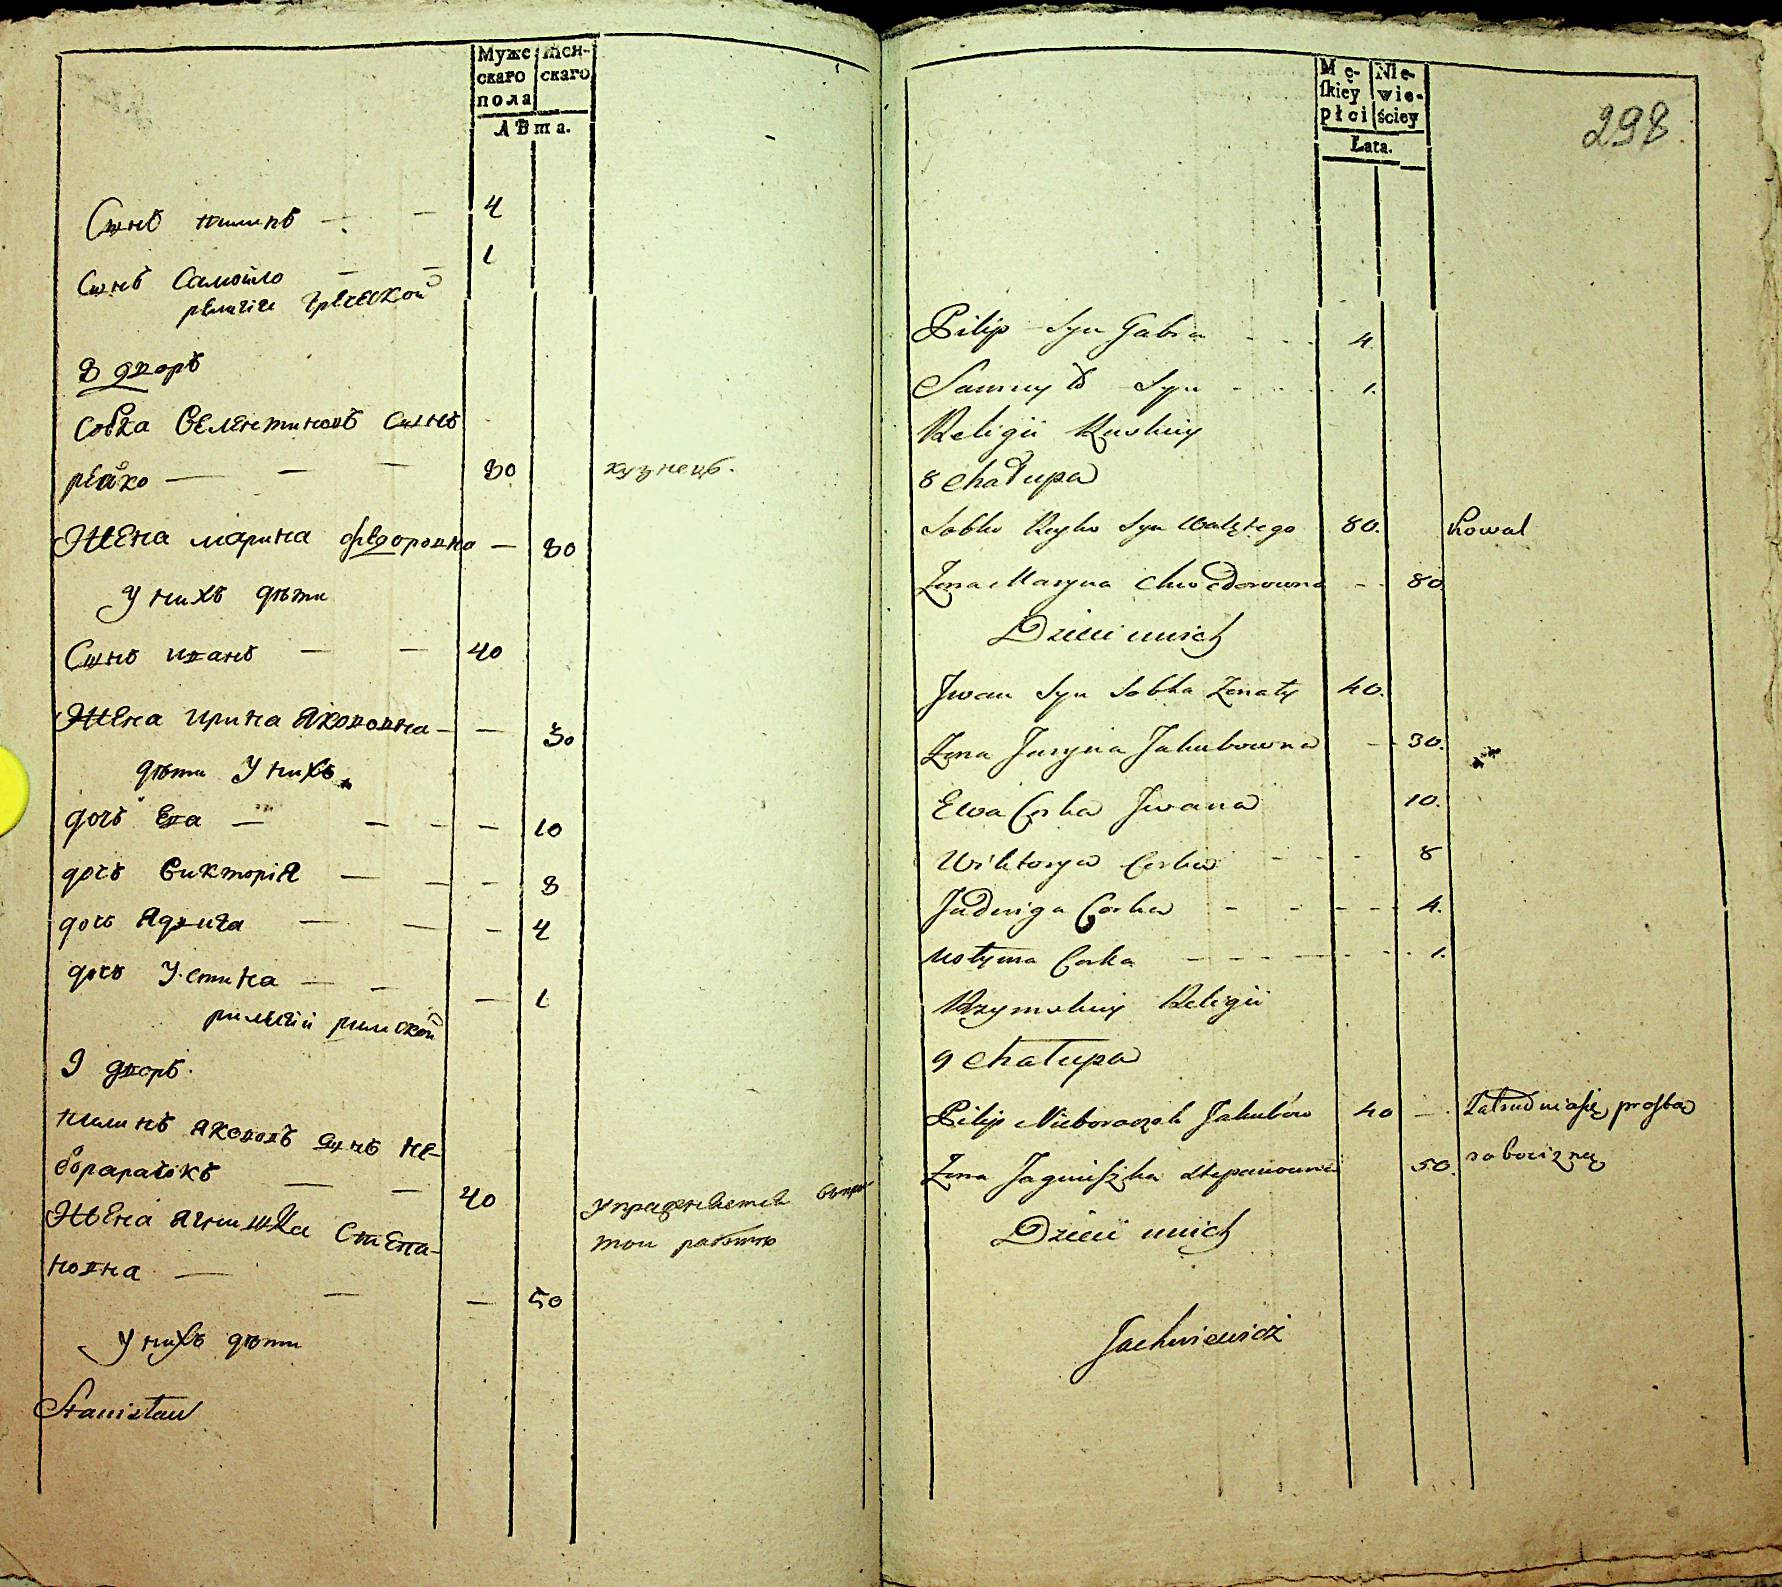 Муже скаго пола
Жен- скаго
ЛѢта.
Сынъ пилипъ — — 4
Сынъ Самойло — — 1
религіи греческой
8 дворъ
Собка Велентиновъ Сынъ
рейко — — — 80 кузнецъ.
Жена марина федоровна — 80
У нихъ дѣти
Сынъ иванъ — — 40
Жена ирина Якововна — — 30
дѣти У нихъ
дочь Ева — — — — 10
дочь Викторія — — — 8
дочь Ядвига — — — 4
дочь Устина — — — 1
религіи римской
9 дворъ.
пилипъ Якововъ Сынъ Не-
борарачокъ — — 40
упражняется въпрос
той работою
Жена Ягнишка Степа-
новна — — — 50
У нихъ дѣти
Stanisław
298
Mę- skiey płci
Nie- wie- ściey
Łata.
Pilip Syn Gabra - - - 4.
Samuyło Syn - - - 1.
Religii Ruskiey
8 Chałupa
Sobko Reyko Syn Walętego 80. Kowal
Żona Maryna Chwedorowna - - 80
Dzieci unich
Jwan Syn Sobka Żonaty 40.
Żona Jaryna Jakubowna - - 30.
Ewa Corka Jwana 10.
Wiktorya Corka - - - 8
Jadwiga Corka - - - - - 4.
Ustyma Corka - - - - - - 1.
Rzymskiey Religii
9 Chałupa
Pilip Nieboraczek Jakubów 40 — Zatrudnia się prostą
robocizną
Żona Jagniszka Stepanowna 50.
Dzieci unich
Jachniewicz